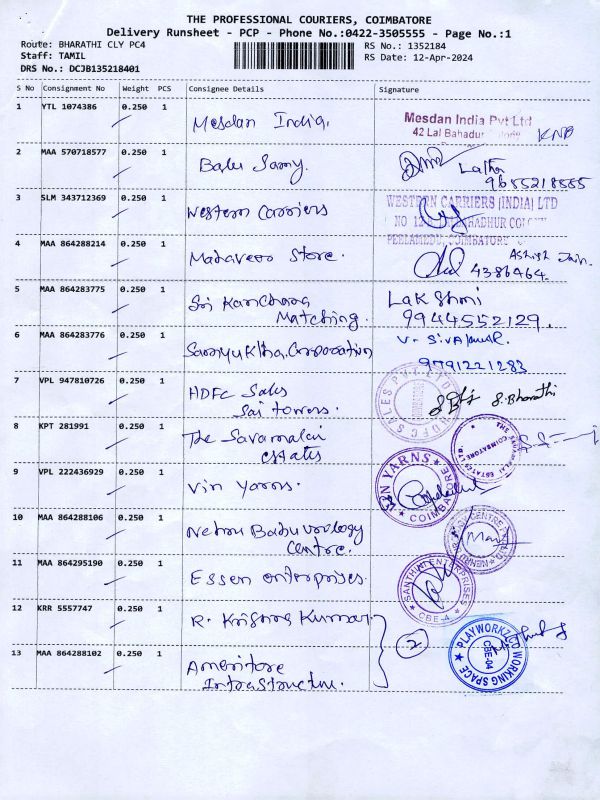 THE PROFESSIONAL COURIERS, COIMBATORE
Delivery Runsheet - PCP - Phone No.:0422-3505555 - Page No.:1
Route: BHARATHI CLY PC4
RS No.: 1352184
Staff: TAMIL
RS Date: 12-Apr-2024
DRS No.: DCJB135218401
S No Consignment No Weight PCS Consignee Details Signature
1 YTL 1074386 0.250 1 Mesdan India. Mesdan India Pvt Ltd
42 Lal Bahadur KNB
2 MAA 570718577 0.250 1 Babu Samy. Latha
9655218555
3 SLM 343712369 0.250 1 Western Carriers WESTERN CARRIERS (INDIA) LTD
PEELAMEDU, COIMBATORE
4 MAA 864288214 0.250 1 Mahaveer Store. Ashish Jain.
4386464.
5 MAA 864283775 0.250 1 Sri Kanchana Lakshmi
Matching. 9944552129.
6 MAA 864283776 0.250 1 Samyuktha. Corporation V. Sivakumar.
9791221283
7 VPL 947810726 0.250 1 HDFC Sales S. Bharathi
Sai towers. HDFC SALES PVT LTD
8 KPT 281991 0.250 1 The Savamalai
Estates COIMBATORE
9 VPL 222436929 0.250 1 Vin Yarns. YARNS COIMBATORE
10 MAA 864288106 0.250 1 Nehru Babu Urology
Centre.
11 MAA 864295190 0.250 1 Essen enterprises. SANTHINI ENTERPRISES CBE-4
12 KRR 5557747 0.250 1 R. Krishna Kumar
2
13 MAA 864288102 0.250 1 Ameritore PLAYWORKZ CO WORKING SPACE CBE-04
Infrastructure.